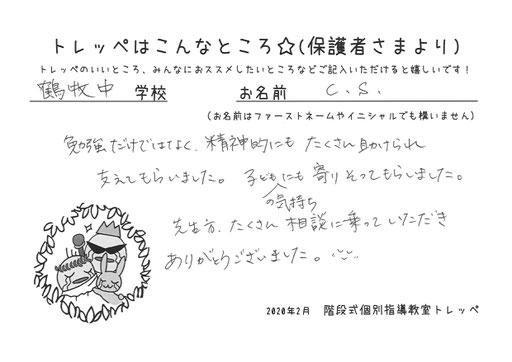 トレッペはこんなところ☆(保護者さまより)
トレッペのいいところ、みんなにおススメしたいところなどご記入いただけると嬉しいです！
鶴牧中 学校 お名前 C.S.
(お名前はファーストネームやイニシャルでも構いません)
勉強だけではなく、精神的にも たくさん助けられ
支えてもらいました。子どもの気持ちにも 寄りそってもらいました。
先生方、たくさん 相談に乗って いただき
ありがとうございました。
2020年2月 階段式個別指導教室トレッペ